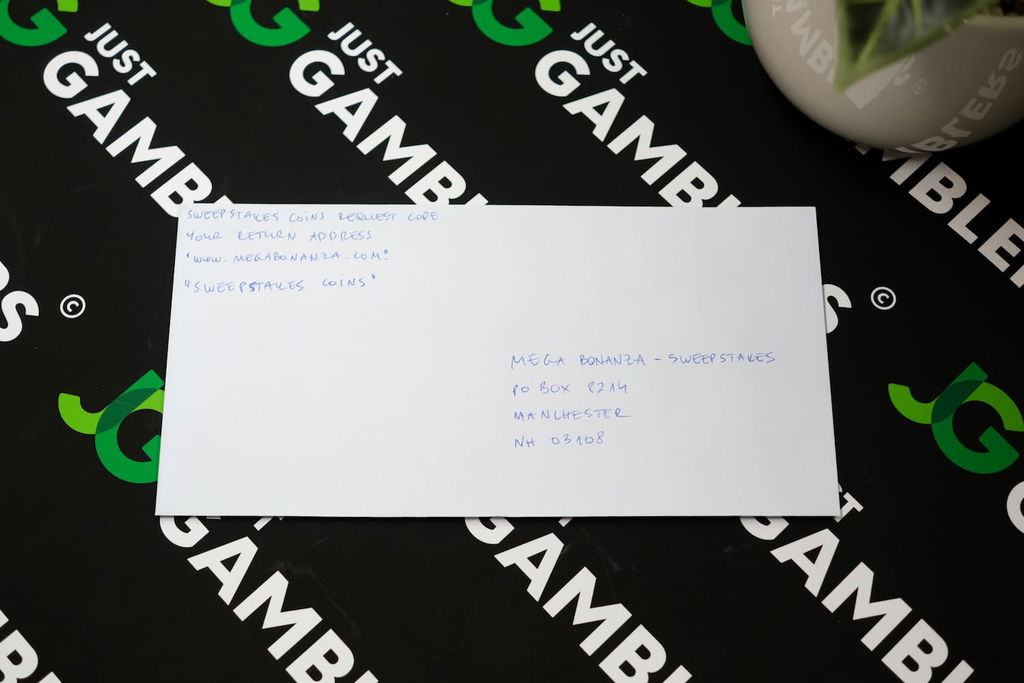 JUST
GAMBLERS
JUST
GAMB
JUST
GAMBLERS
SWEEPSTAKES COINS REQUEST CODE
YOUR RETURN ADDRESS
"WWW.MEGABONANZA.COM"
"SWEEPSTAKES COINS"
MEGA BONANZA - SWEEPSTAKES
PO BOX 8214
MANCHESTER
NH 03108
©
©
JG
JG
GAMBL
GAMBL
GAMBL